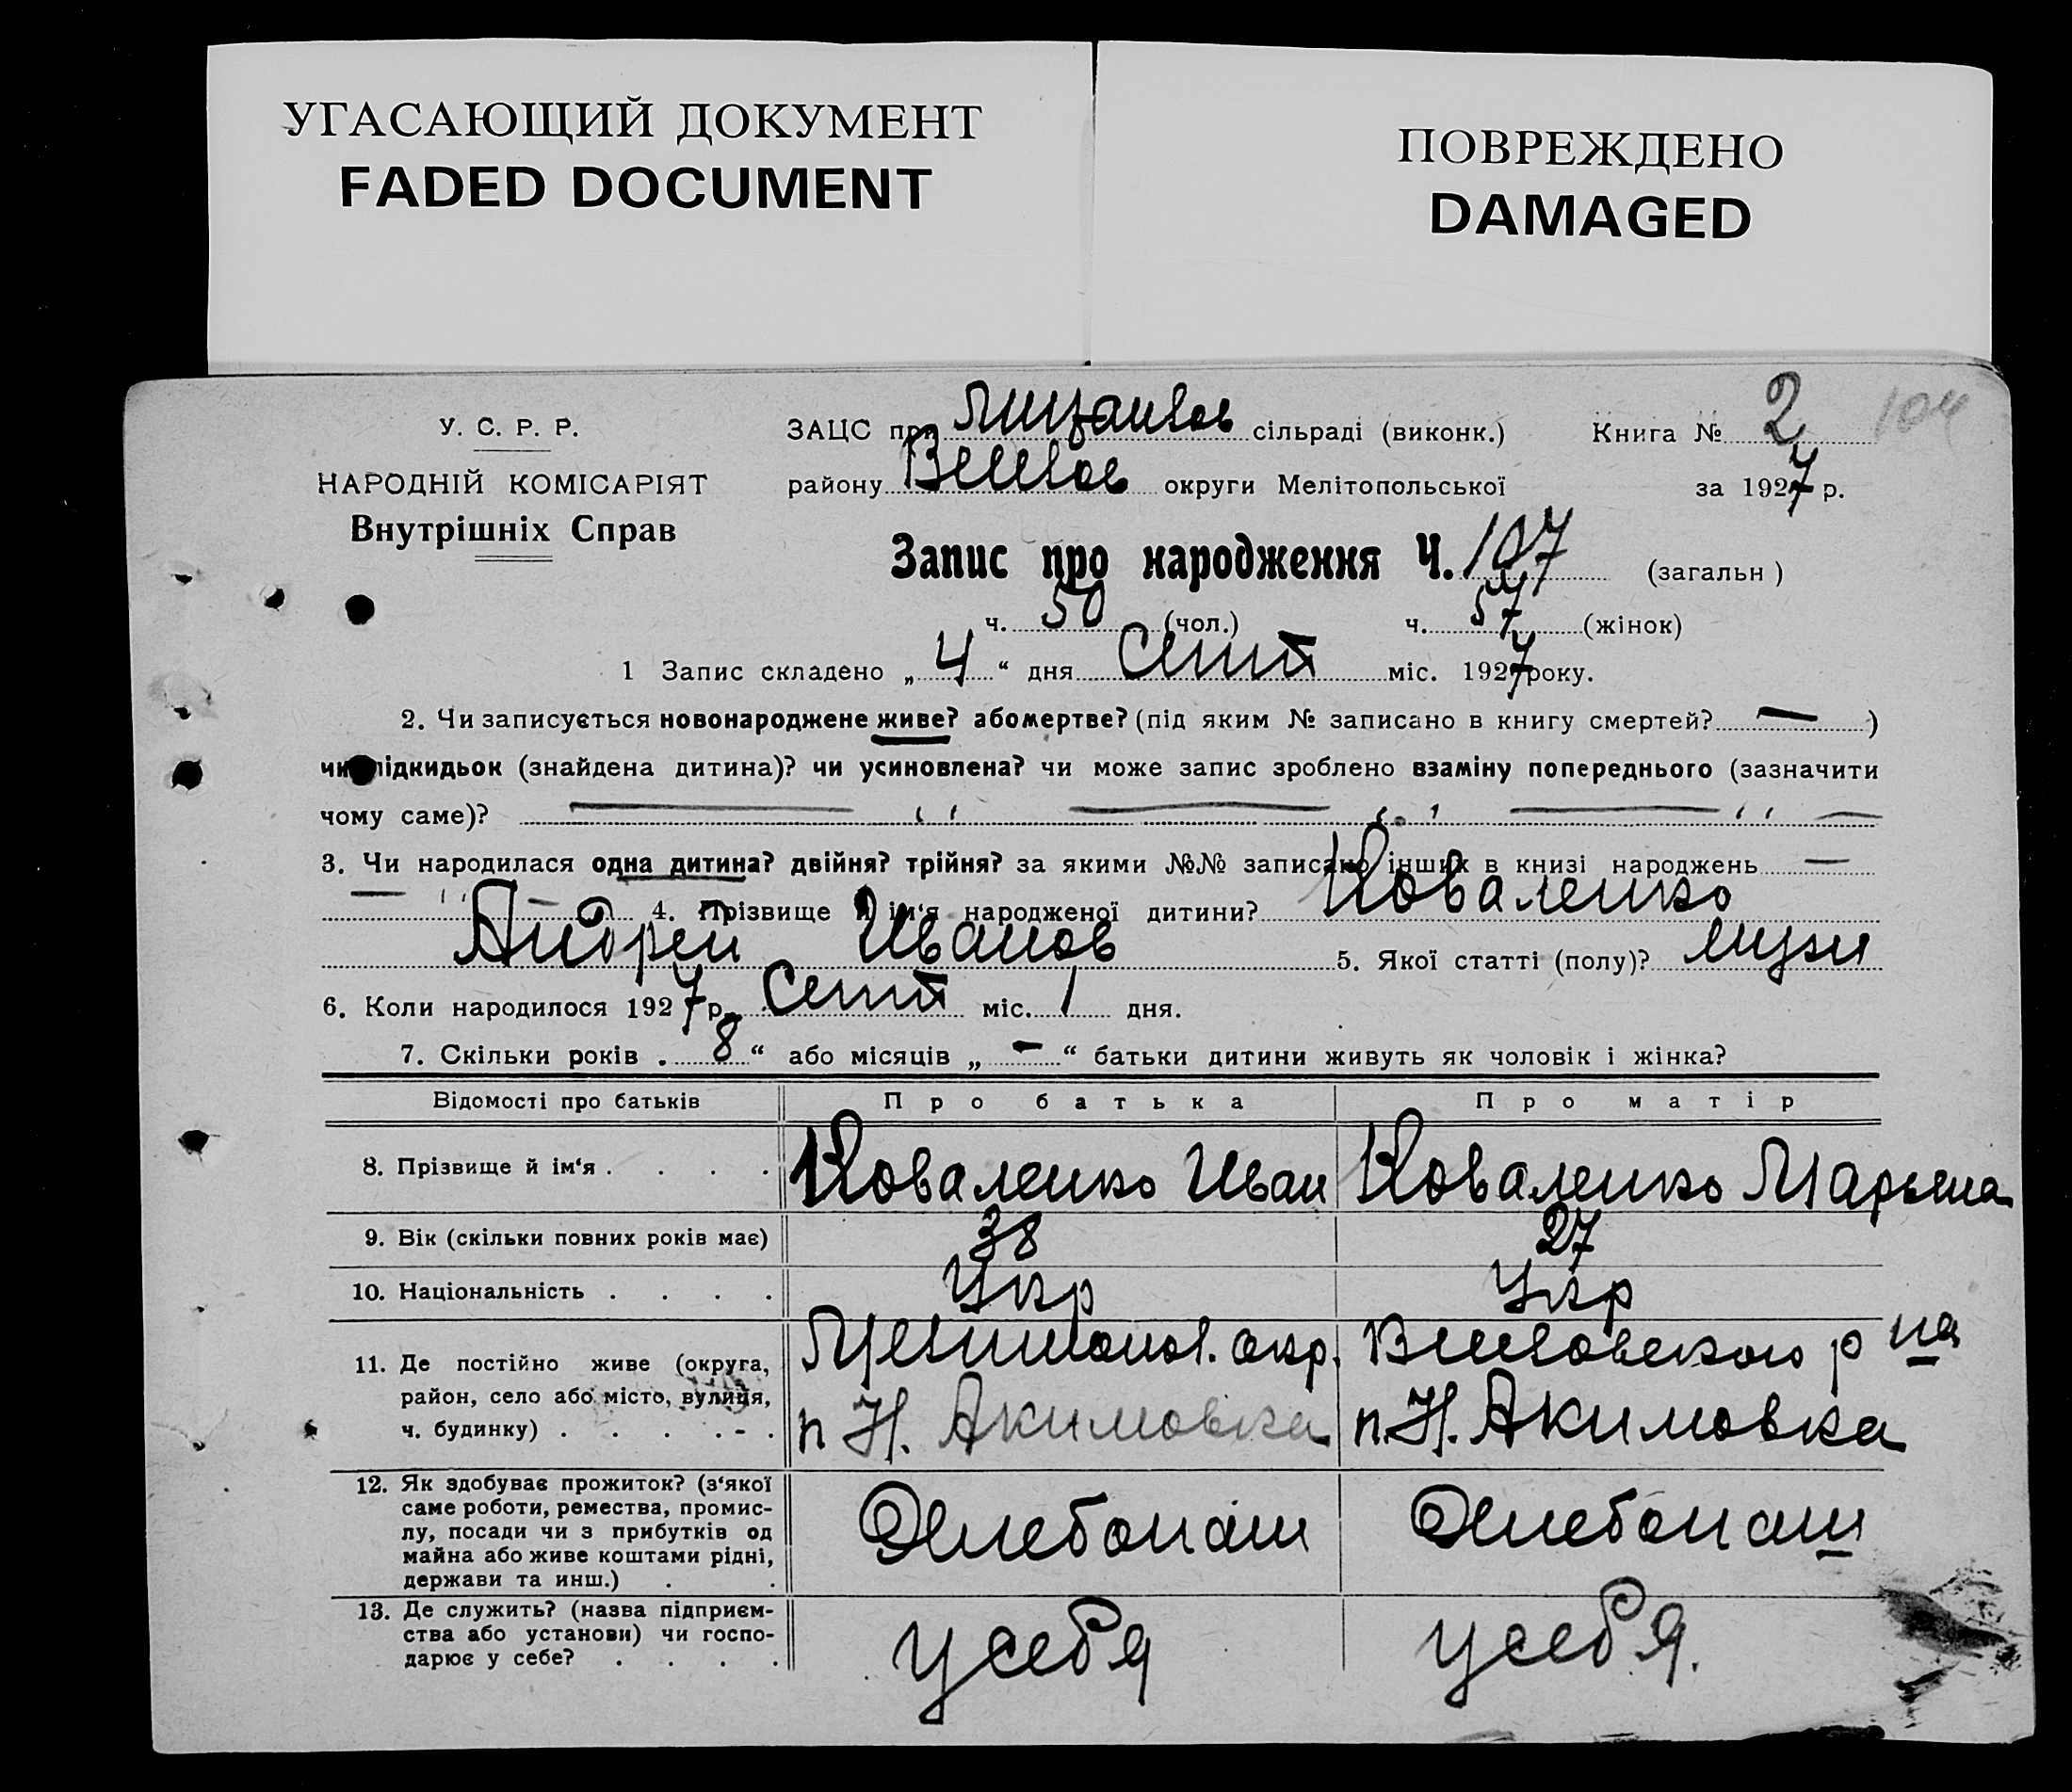 УГАСАЮЩИЙ ДОКУМЕНТ
FADED DOCUMENT
ПОВРЕЖДЕНО
DAMAGED
У. С. Р. Р.
НАРОДНІЙ КОМІСАРІЯТ
Внутрішніх Справ
ЗАЦС при сільраді (виконк.) Книга № 2 104
району округи Мелітопольської за 1927 р.
Запис про народження Ч. 107 (загальн )
ч. 50 (чол.) ч. 57 (жінок)
1 Запис складено „ 4 “ дня Септ міс. 1927 року.
2. Чи записується новонароджене живе? або мертве? (під яким № записано в книгу смертей? — )
чи підкидьок (знайдена дитина)? чи усиновлена? чи може запис зроблено взаміну попереднього (зазначити
чому саме)? — " — " — " —
3. Чи народилася одна дитина? двійня? трійня? за якими №№ записано інших в книзі народжень —
— " — 4. Прізвище й ім‘я народженої дитини? Коваленко
Андрей Иванов 5. Якої статті (полу)? мужс
6. Коли народилося 1927 р. Септ міс. 1 дня.
7. Скільки років „ 8 “ або місяців „ — “ батьки дитини живуть як чоловік і жінка?
Відомості про батьків Про батька Про матір
8. Прізвище й ім‘я . . . . Коваленко Иван Коваленко Марьяна
9. Вік (скільки повних років має) 38 27
10. Національність . . . . Укр Укр
11. Де постійно живе (округа, окр. р на
район, село або місто, вулиця,
ч. будинку) . . . . - . п Н. Акимовка п. Н. Акимовка
12. Як здобуває прожиток? (з‘якої
саме роботи, ремества, промис-
лу, посади чи з прибутків од Хлебопаш Хлебопаш
майна або живе коштами рідні,
держави та инш.) . .
13. Де служить? (назва підприєм-
ства або установи) чи госпо- у себя у себя.
дарює у себе? . . . .